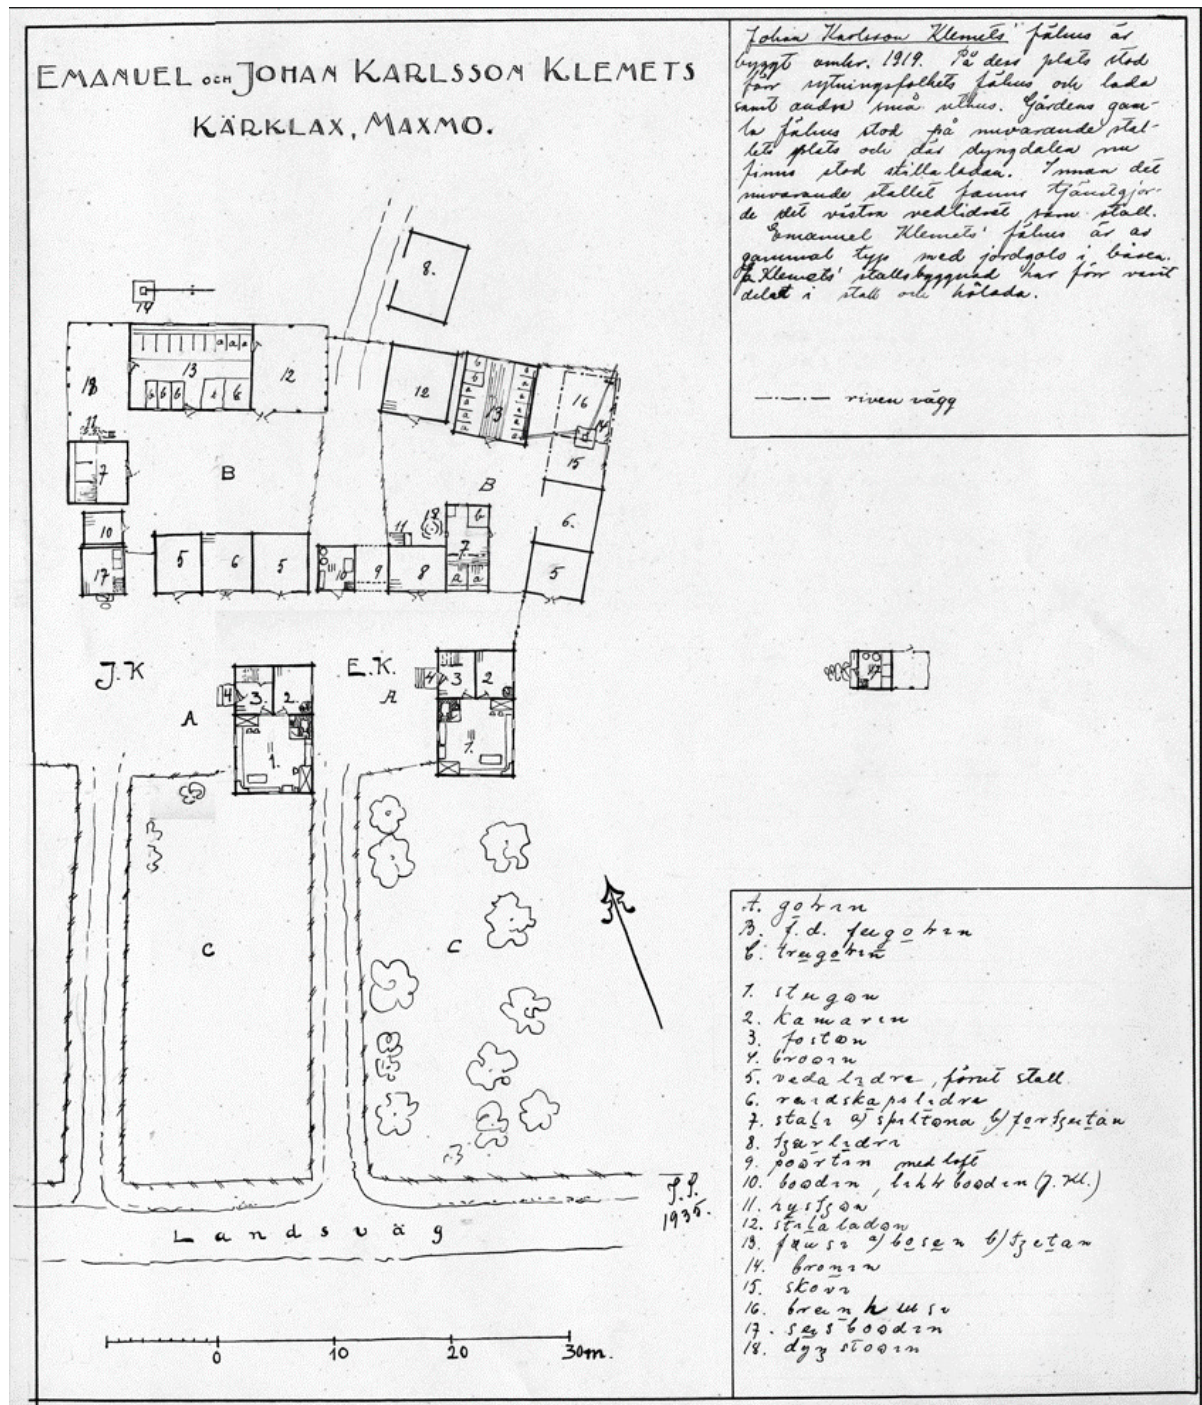 EMANUEL OCH JOHAN KARLSSON KLEMETS
KÄRKLAX, MAXMO.
Johan Karlsson Klemets' fähus är
byggt omkr. 1919. På dess plats stod
förr sytningsfolkets fähus och lada
samt andra små uthus. Gårdens gam-
la fähus stod på nuvarande stal-
lets plats och där dyngdalen nu
finns stod stilla ladan. Innan det
nuvarande stallet fanns tjänstgjor-
de det västra vedlidret som stall.
Emanuel Klemets' fähus är av
gammal typ med jordgolv i båsen.
J. Klemets' stallsbyggnad har förr varit
delat i stall och hölada.
riven vägg
8.
14
18
13
a a a
b b b
b
12
12
13
16
14
15
11
7
B
B
10
17
5
6
5
10
9
8
11
18
7.
b
a a
6.
5
J.K
E.K.
A
A
4
3.
2.
1.
4
3
2
1.
17
C
C
Landsväg
J.S.
1935.
0 10 20 30m.
A. gohın
B. f.d. feıgohın
C. treıgohın
1. stugon
2. kamarın
3. foston
4. brooın
5. veda lıdre, förut stall
6. reıdskapslıdre
7. stalı a) spıltona b)
8.
9. poortın med loft
10. boodın, (J. Kl.)
11. hystzon
12. stılaladon
13. a) bosen b) tzetan
14. bronın
15. skovı
16. breınhusı
17. boodın
18.